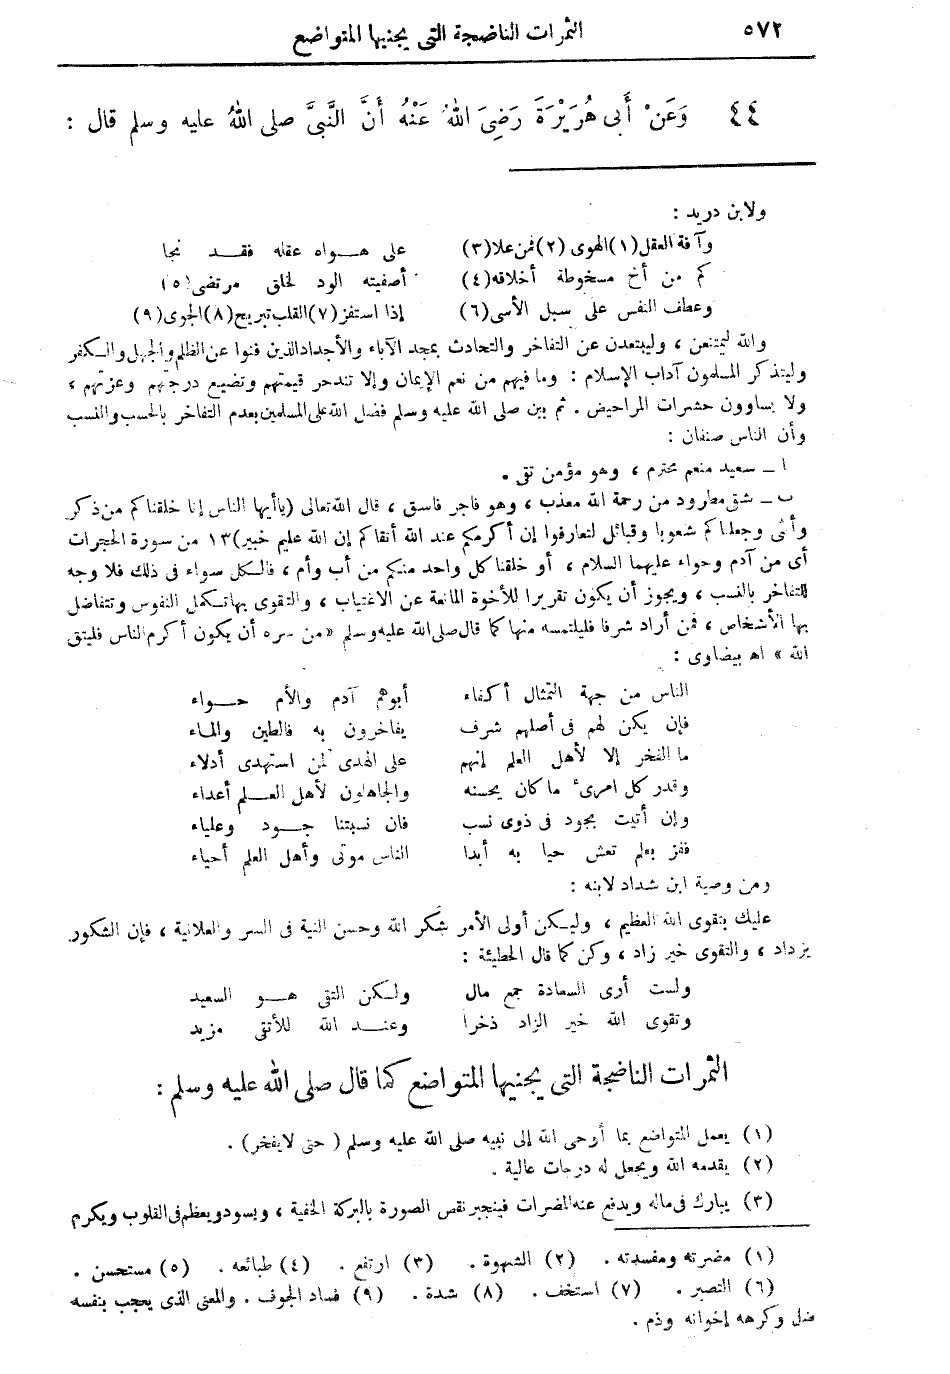 ٥٧٢ الثمرات الناضجة التى يجنيها المتواضع
٤٤ وَعَنْ أَبى هُرَيْرَةَ رَضِىَ اللهُ عَنْهُ أَنَّ النَّبِىَّ صلى اللهُ عليه وسلم قال :
ولابن دريد :
وآفة العقل(١) الهوى (٢) فمن علا(٣) على هــواه عقله فقــد نجا
كم من أخ مسخوطة أخلاقه(٤) أصفيته الود لخلق مرتضى(٥)
وعطف النفس على سبل الأسى(٦) إذا استفز(٧) القلب تبريح(٨) الجوى(٩)
والله ليمتنعن ، وليبتعدن عن التفاخر والتحادث بمجد الآباء والأجداد الذين فنوا عن الظلم والجهل والكفر
وليتذكر المسلمون آداب الإسلام : وما فيهم من نعم الإيمان وإلا تندحر قيمتهم وتضيع درجتهم وعزتهم ،
ولا يساوون حشرات المراحيض . ثم بين صلى الله عليه وسلم فضل الله على المسلمين بعدم التفاخر بالحسب والنسب
وأن الناس صنفان :
ا ــ سعيد منعم محترم ، وهو مؤمن تقى .
ب ــ شقى مطرود من رحمة الله معذب ، وهو فاجر فاسق ، قال الله تعالى (ياأيها الناس إنا خلقناكم من ذكر
وأنثى وجعلناكم شعوبا وقبائل لتعارفوا إن أكرمكم عند الله أتقاكم إن الله عليم خبير)١٣ من سورة الحجرات
أى من آدم وحواء عليهما السلام ، أو خلقنا كل واحد منكم من أب وأم ، فالكل سواء فى ذلك فلا وجه
للتفاخر بالنسب ، ويجوز أن يكون تقريرا للأخوة المانعة عن الاغتياب ، والتقوى بها تكمل النفوس وتتفاضل
بها الأشخاص ، فمن أراد شرفا فليلتمسه منها كما قال صلى الله عليه وسلم «من سره أن يكون أكرم الناس فليتق
الله » اهـ بيضاوى :
الناس من جهة التمثال أكفاء أبوهم آدم والأم حــواء
فإن يكن لهم فى أصلهم شرف يفاخرون به فالطين والماء
ما الفخر إلا لأهل العلم إنهم على الهدى لمن استهدى أدلاء
وقدر كل امرئ ما كان يحسنه والجاهلون لأهل العــلم أعداء
وإن أتيت بجود فى ذوى نسب فان نسبتنا جــود وعلياء
ففز بعلم تعش حيا به أبدا الناس موتى وأهل العلم أحياء
ومن وصية ابن شداد لابنه :
عليك بتقوى الله العظيم ، وليكن أولى الأمر شكر الله وحسن النية فى السر والعلانية ، فإن الشكور
يزداد ، والتقوى خير زاد ، وكن كما قال الحطيئة :
ولست أرى السعادة جمع مال ولكن التقى هــو السعيد
وتقوى الله خير الزاد ذخرا وعنــد الله للأتقى مزيد
الثمرات الناضجة التى يجنيها المتواضع كما قال صلى الله عليه وسلم :
(١) يعمل المتواضع بما أوحى الله إلى نبيه صلى الله عليه وسلم ( حتى لا يفخر) .
(٢) يقدمه الله ويجعل له درجات عالية .
(٣) يبارك فى ماله ويدفع عنه المضرات فينجبر نقص الصورة بالبركة الخفية ، ويسود ويعظم فى القلوب ويكرم
(١) مضرته ومفسدته . (٢) الشهوة . (٣) ارتفع . (٤) طبائعه . (٥) مستحسن .
(٦) التصبر . (٧) استخف . (٨) شدة . (٩) فساد الجوف . والمعنى الذى يعجب بنفسه
ضل وكرهه إخوانه وذم .